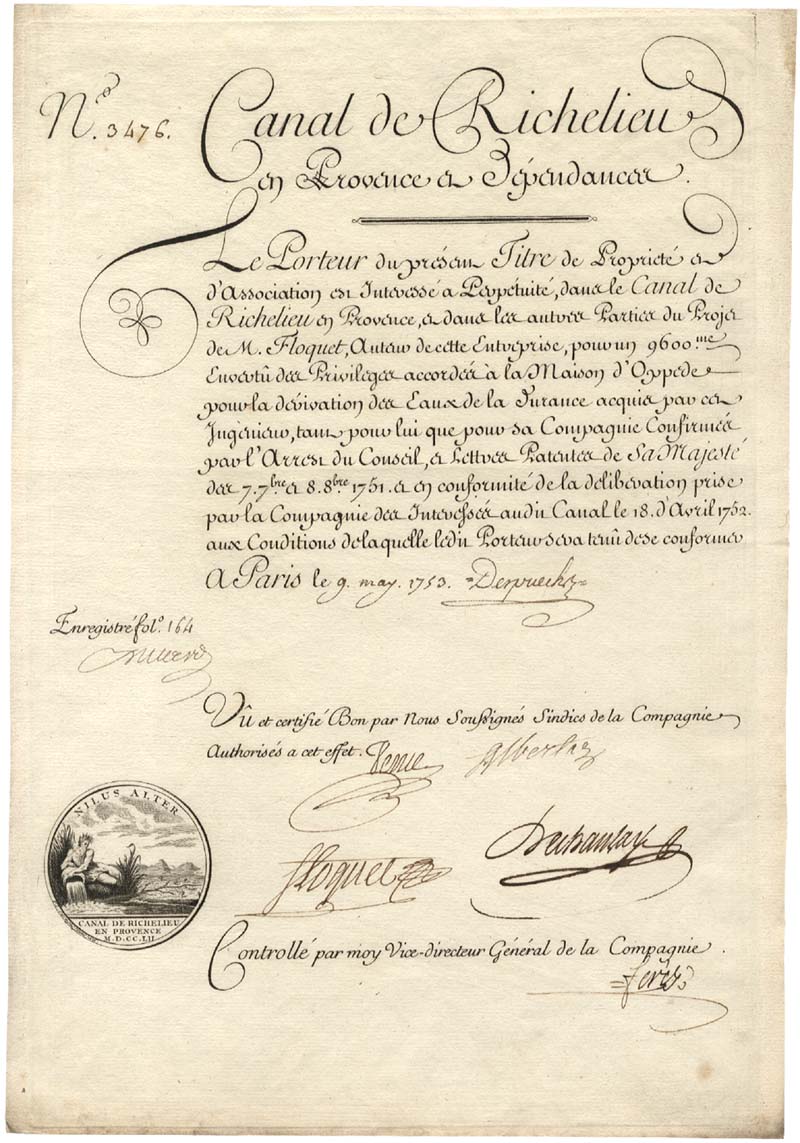 N.º 3476.
Canal de Richelieu
en Provence et Dépendances.
Le Porteur du présent Titre de Propriété et
d'Association est Interessé a Perpetuité, dans le Canal de
Richelieu en Provence, et dans les autres Parties du Projet
de M. Floquet, Auteur de cette Entreprise, pour un 9600.me
En vertû des Privileges accordés à la Maison d'Oppede
pour la dérivation des Eaux de la Durance acquis par cet
Ingénieur, tant pour lui que pour sa Compagnie Confirmés
par l'Arrest du Conseil, et Lettres Patentes de Sa Majesté
des 7. 7bre et 8. 8bre 1751. et en conformité de la deliberation prise
par la Compagnie des Interessés audit Canal le 18. d'Avril 1752.
aux Conditions de laquelle ledit Porteur sera tenû de se conformer
A Paris le 9. may. 1753. Despuechs
Enregistré fol.º 164
Vû et certifié Bon par Nous Soussignés Sindics de la Compagnie
Authorisés a cet effet.
NILUS ALTER
Floquet
CANAL DE RICHELIEU
EN PROVENCE
M.D.CC.LII
Controllé par moy Vice-directeur Général de la Compagnie.